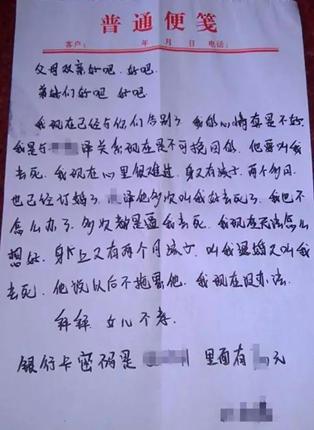 普通便笺
客户： 年 月 日 电话：
父母双亲好吧、好吧
弟妹们好吧 好吧、
我现在已经与你们告别了 我的心情真是不好
我是与 泽关系现在是不可挽回的、他要叫我
去死、我现在心里很难过、身又有孩子 两个多月、
也已经订婚了 泽他多次叫我去死了、我也不
怎么办了、多次都是逼我去死、我现在无法怎么
想好、身上又有两个月孩子、叫我退婚又叫我
去死、他说以后不拖累他、我现在没办法、
拜拜、女儿不孝、
银行卡密码是 里面有 元